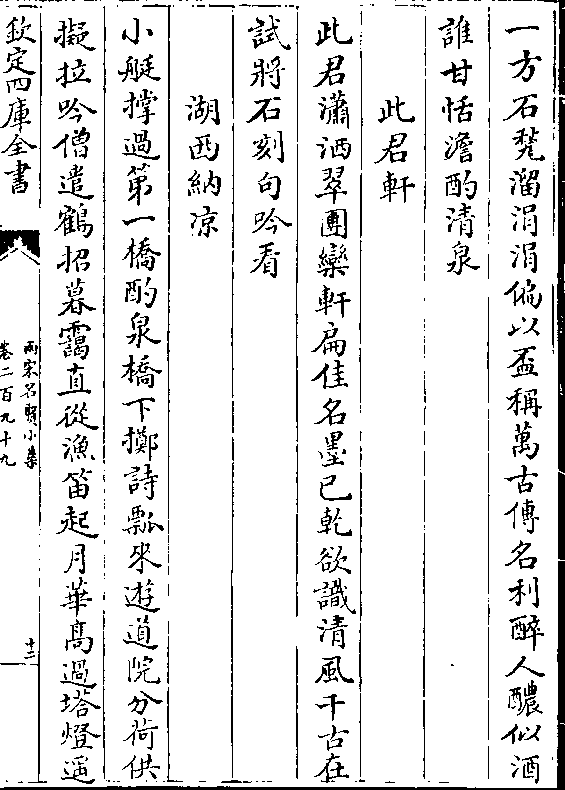 一方石甃溜涓涓偏以盃稱萬古傳名利醉人醲似酒
誰甘恬澹酌清泉
此君軒
此君瀟洒翠團欒軒扁佳名墨已乾欲識清風千古在
試將石刻句吟看
湖西納凉
小艇撑過第一橋酌泉橋下擲詩瓢来遊道院分荷供
擬拉吟僧遣鶴招暮靄直從漁笛起月華髙過塔燈遥
欽定四庫全書
兩宋名賢小集
卷二百九十九
十二